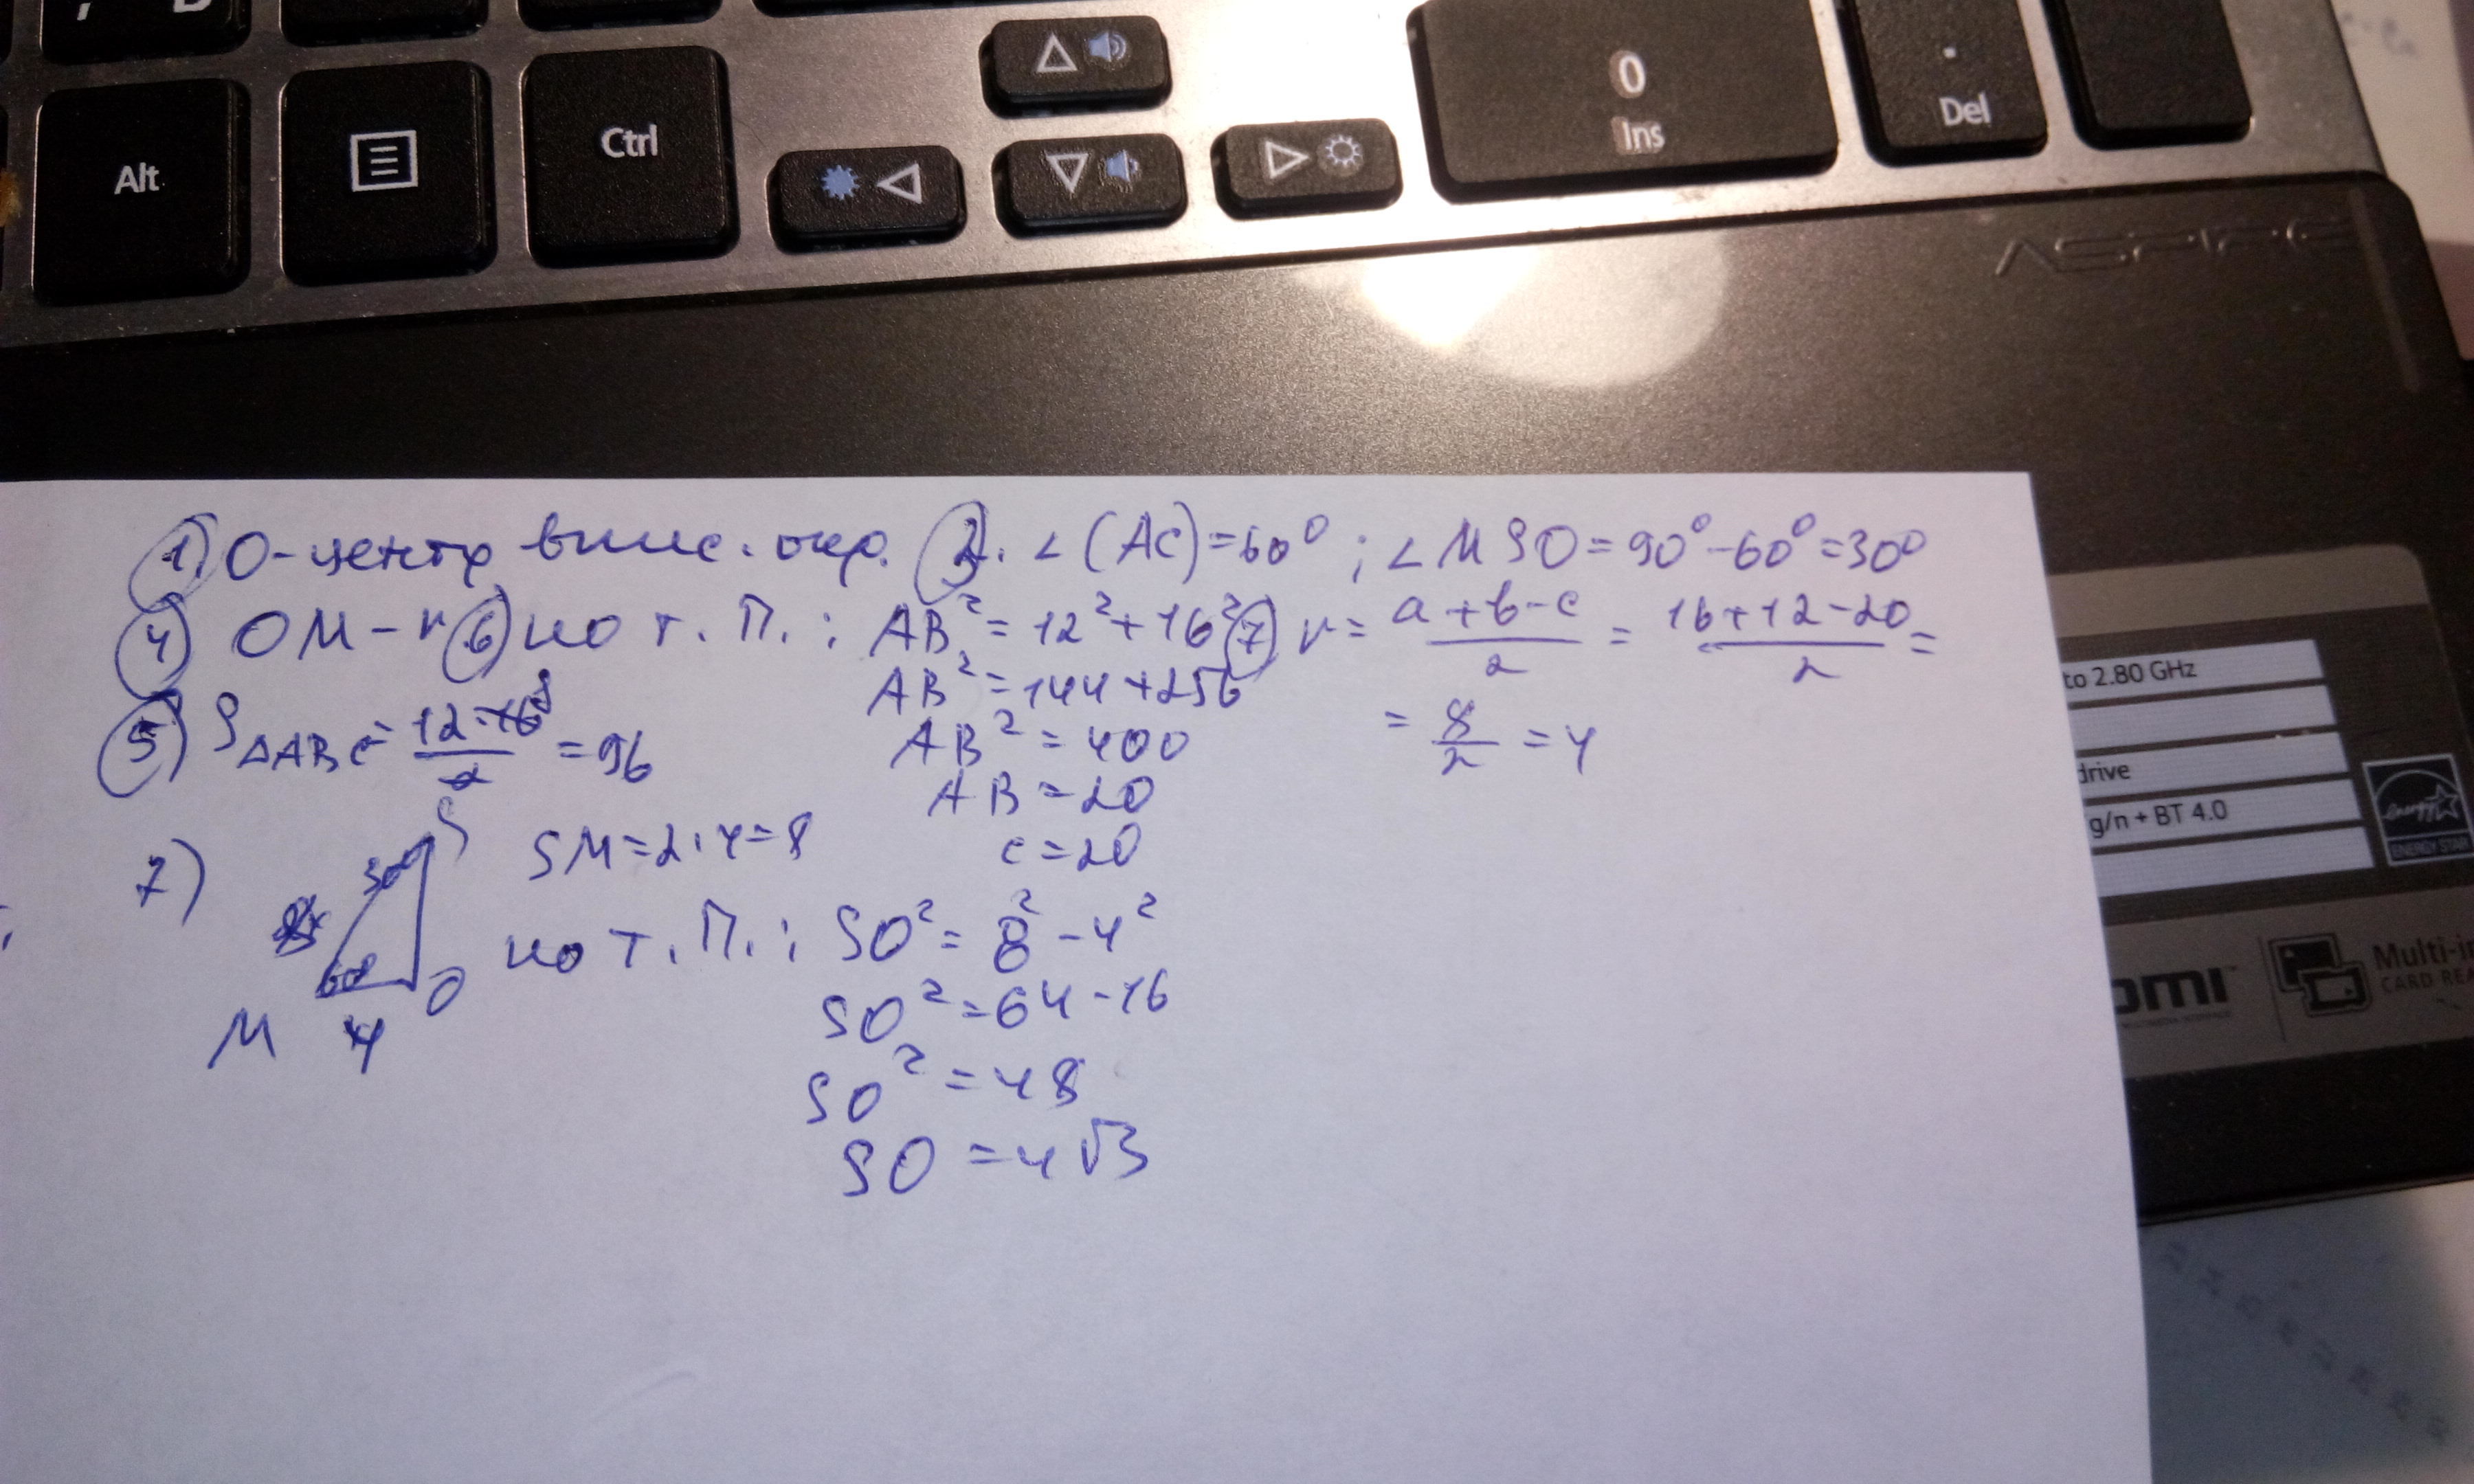 Alt
Ctrl
0
Ins
.
Del
ASPIRE
to 2.80 GHz
drive
g/n + BT 4.0
ENERGY STAR
Multi-i
CARD REA
1) O-центр впис. окр. 2. ∠(AC)=60°; ∠MSO=90°-60°=30°
4) OM-r 6) по т. П.: AB²=12²+16² 7) r=(a+b-c)/2=(16+12-20)/2=
AB²=144+256
=8/2=4
5) S△ABC=(12·16 8)/2=96
AB²=400
AB=20
c=20
7) S
30°
60°
M
4
O
SM=2·4=8
по т. П.: SO²=8²-4²
SO²=64-16
SO²=48
SO=4√3